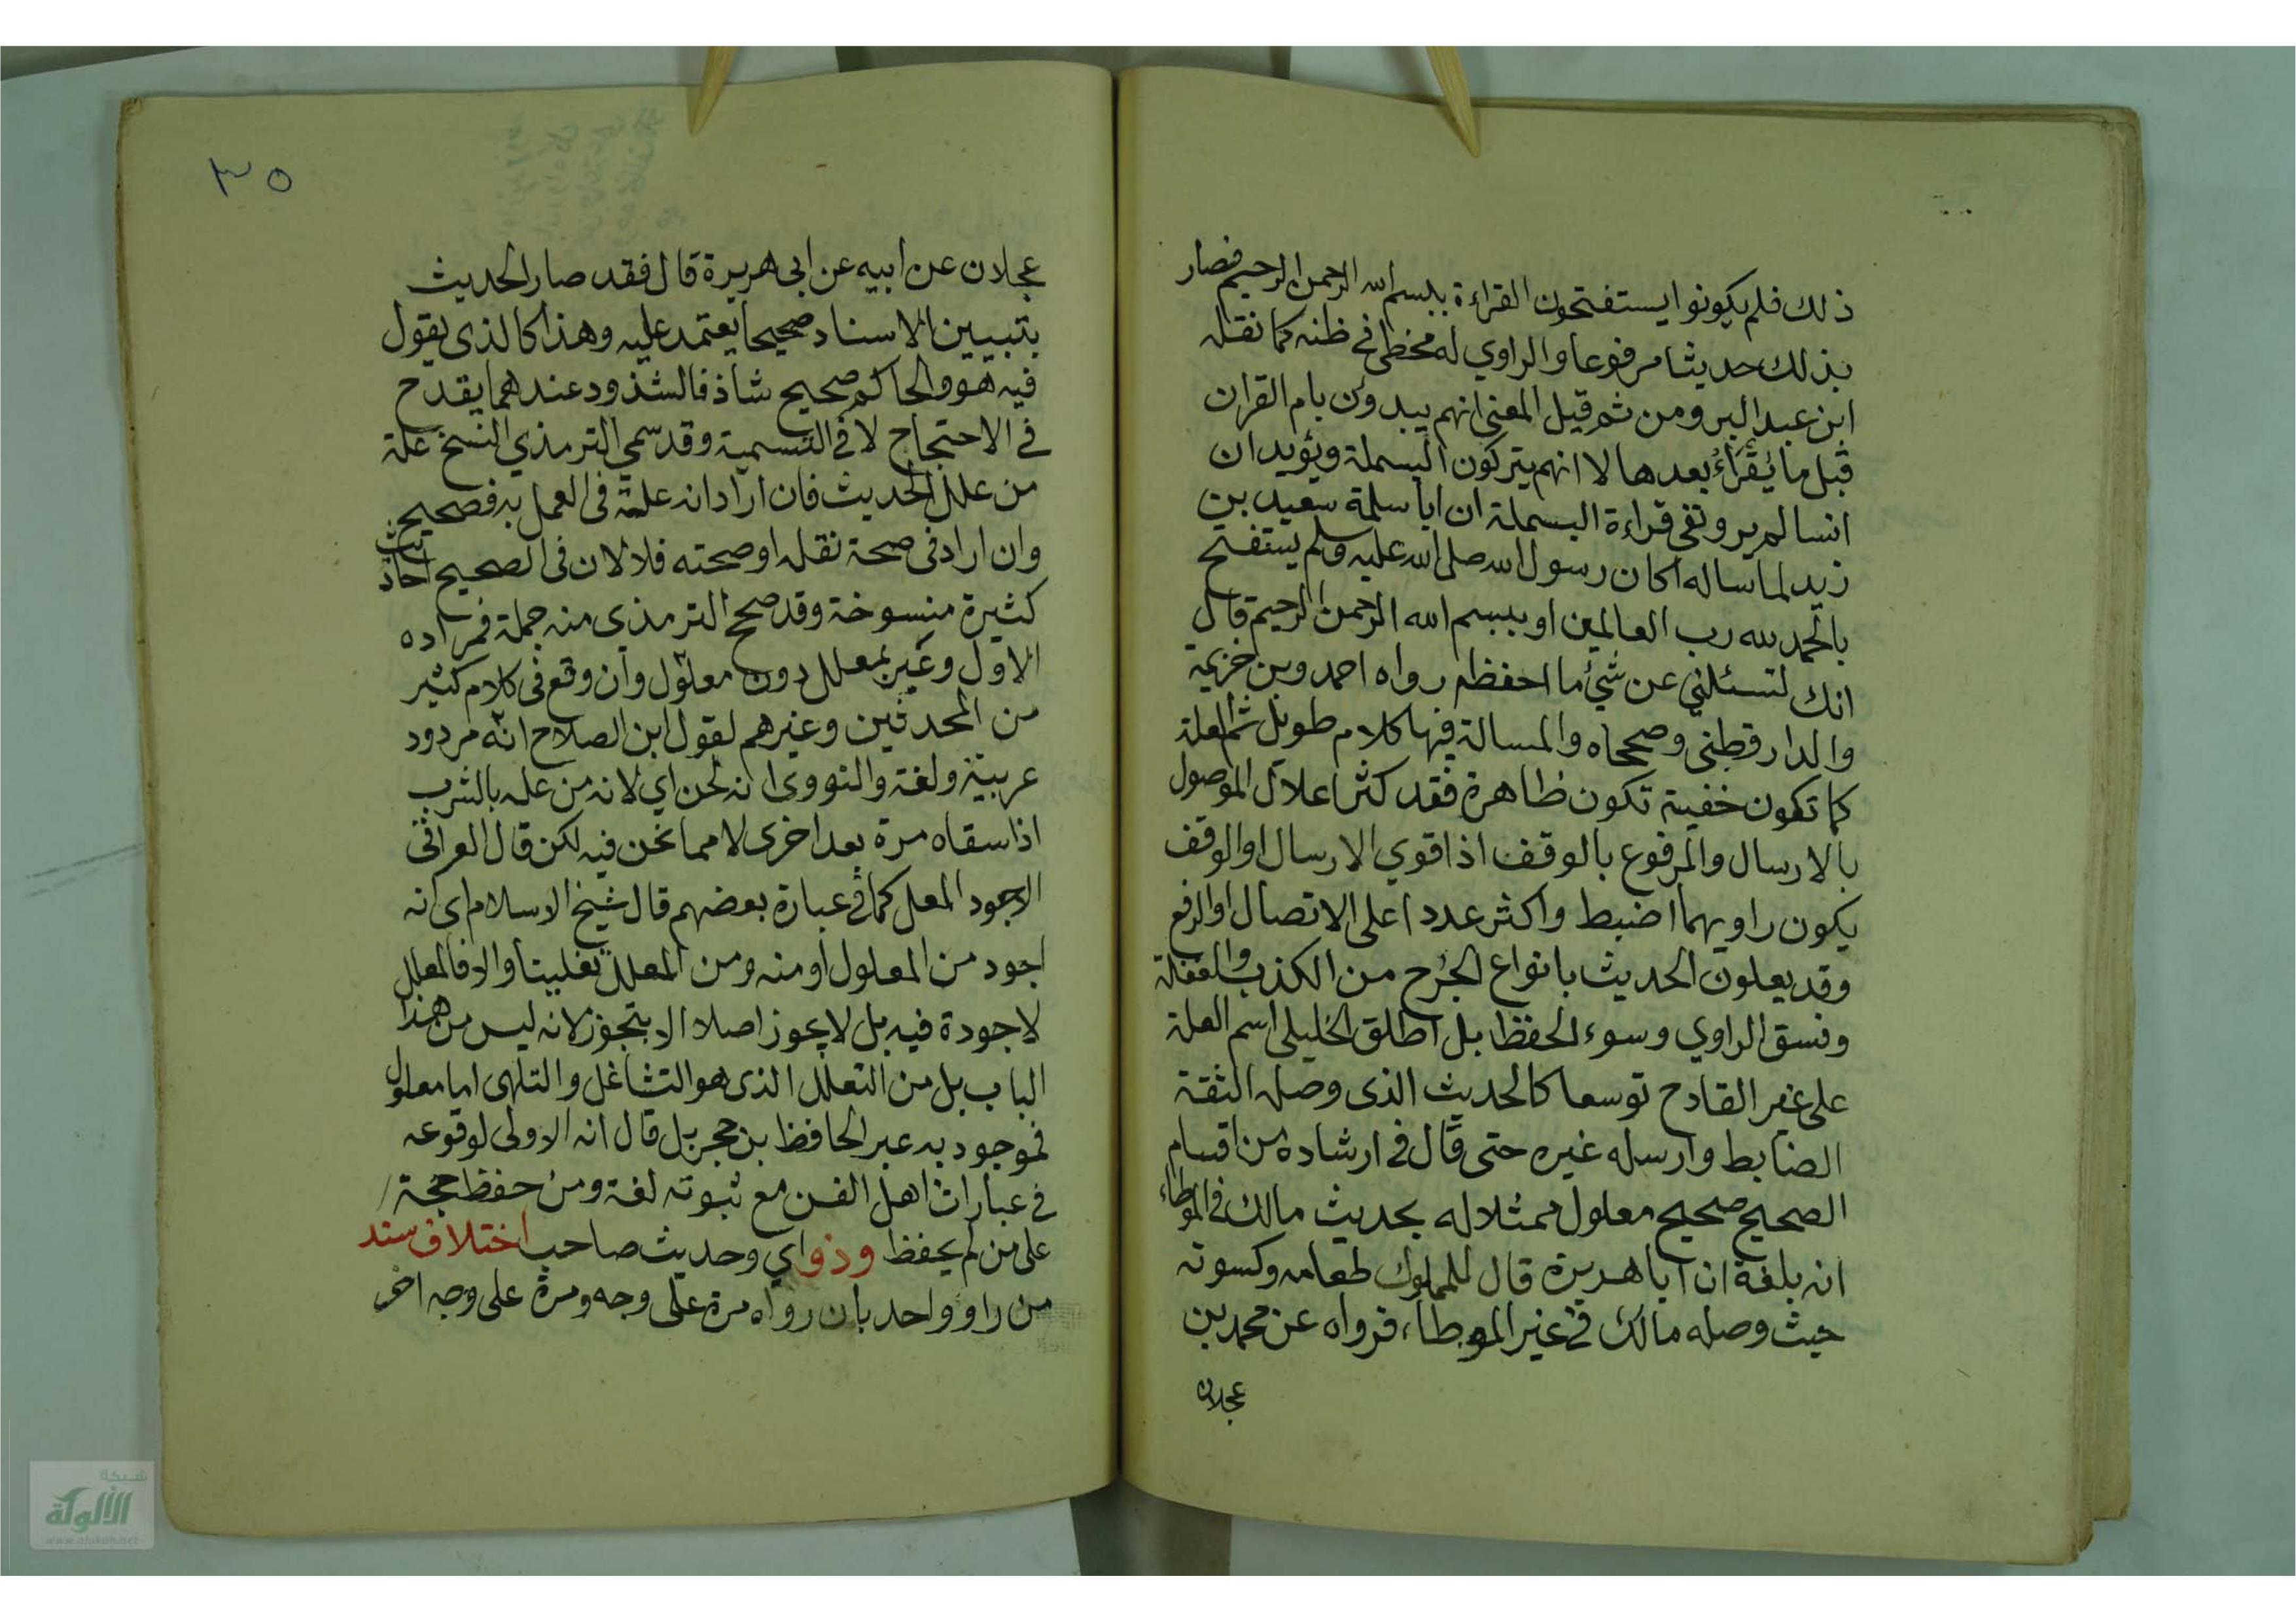 ذلك فلم يكونوا يستفتحون القراءة ببسم الله الرحمن الرحيم فصار
بذلك حديثا مرفوعا والراوي له مخطئ في ظنه كما نقله
ابن عبد البر ومن ثم قيل المعنى انهم يبدؤن بام القران
قبل ما يُقرَأُ بعدها لا انهم يتركون البسملة ويؤيد ان
انسا لم يرو نفي قراءة البسملة ان ابا سلمة سعيد بن
زيد لما ساله اكان رسول الله صلى الله عليه وسلم يستفتح
بالحمد لله رب العالمين او ببسم الله الرحمن الرحيم قال
انك لتسئلني عن شيء ما احفظه رواه احمد وبن خزيمة
والدارقطني وصححاه والمسالة فيها كلام طويل ثم العلة
كما تكون خفية تكون ظاهرة فقد كثر اعلال الموصول
بالارسال والمرفوع بالوقف اذا قوي الارسال او الوقف
يكون راويهما اضبط واكثر عددا على الاتصال او الرفع
وقد يعلون الحديث بانواع الجرح من الكذب والغفلة
وفسق الراوي وسوء الحفظ بل اطلق الخليلي اسم العلة
على غير القادح توسعا كالحديث الذى وصله الثقة
الضابط وارسله غيره حتى قال في ارشاده من اقسام
الصحيح صحيح معلول ممثلا له بحديث مالك في الموطاء
انه بلغه ان ابا هريرة قال للمملوك طعامه وكسوته
حيث وصله مالك في غير الموطاء، فرواه عن محمد بن
عجلان
٣٥
عجلان عن ابيه عن ابى هريرة قال فقد صار الحديث
بتبيين الاسناد صحيحا يعتمد عليه وهذا كالذى يقول
فيه هو والحاكم صحيح شاذ فالشذوذ عندهما يقدح
في الاحتجاج لا في التسمية وقد سمي الترمذي النسخ علة
من علل الحديث فان اراد انه علة فى العمل به فصحيح
وان اراد فى صحة نقله او صحته فلا لان فى الصحيح احاديث
كثيرة منسوخة وقد صحح الترمذى منه جملة فمراده
الاول وعُبر بمعلل دون معلول وان وقع فى كلام كثير
من المحدثين وغيرهم لقول ابن الصلاح انه مردود
عربية ولغة والنووى انه لحن اي لانه من عله بالشرب
اذا سقاه مرة بعد اخرى لا مما نحن فيه لكن قال العراقى
الاجود المعل كما في عبارة بعضهم قال شيخ الاسلام اى انه
اجود من المعلول او منه ومن المعلل تغليبا والا فالمعلل
لا جودة فيه بل لا يجوز اصلا الا بتجوز لانه ليس من هذا
الباب بل من التعلل الذى هو التشاغل والتلهى اما معلول
فموجود به عبر الحافظ بن حجر بل قال انه الاولى لوقوعه
في عبارات اهل الفن مع ثبوته لغة ومن حفظ حجة
على من لم يحفظ وذو اي وحديث صاحب اختلاف سند
من راو واحد بان رواه مرة على وجه ومرة على وجه اخر
شبكة
الألوكة
www.alukah.net